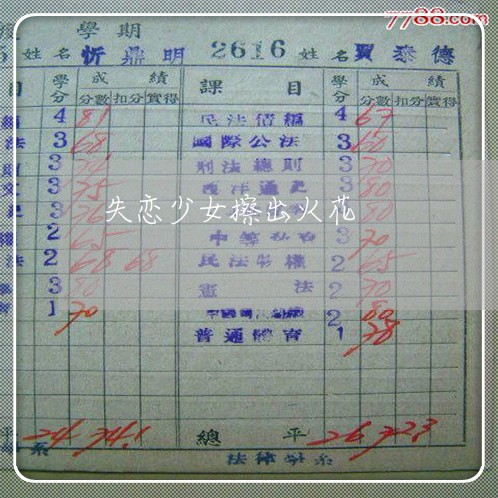 7788.com
學期
姓名 忻鼎明 2616 姓名 賈泰德
目 學分 成績 課目 學分 成績
分數 扣分 實得 分數 扣分 實得
4 81 民法債編 4 67
法 3 68 國際公法 3 60
3 刑法總則 3 70
3 75 西洋通史 3 80
3
失恋少女擦出火花
2 65 3 70
法 2 68 68 民法物權 2 65
3 80 憲法 2 70
1 70 2 80
普通體育 1 78
平 24 74.1 總平 26 72.3
系 法律學系